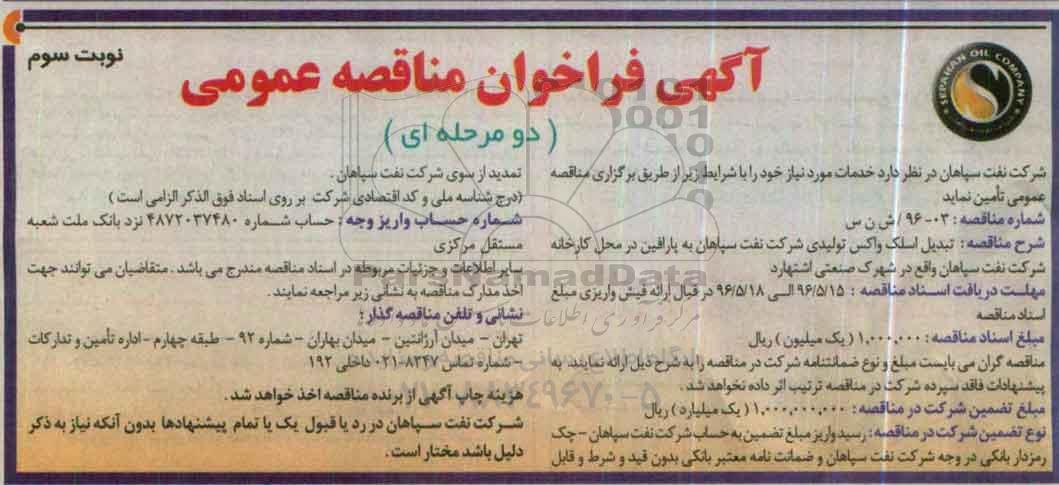 نوبت سوم
آگهی فراخوان مناقصه عمومی
( دو مرحله ای )
SEPAHAN OIL COMPANY
شرکت نفت سپاهان در نظر دارد خدمات مورد نیاز خود را با شرایط زیر از طریق برگزاری مناقصه
عمومی تأمین نماید
شماره مناقصه : ۰۳-۹۶ / ش ن س
شرح مناقصه : تبدیل اسلک واکس تولیدی شرکت نفت سپاهان به پارافین در محل کارخانه
شرکت نفت سپاهان واقع در شهرک صنعتی اشتهارد
مهلت دریافت اسناد مناقصه : ۹۶/۵/۱۵ الی ۹۶/۵/۱۸ در قبال ارائه فیش واریزی مبلغ
اسناد مناقصه
مبلغ اسناد مناقصه : ۱,۰۰۰,۰۰۰ ( یک میلیون ) ریال
مناقصه گران می بایست مبلغ و نوع ضمانتنامه شرکت در مناقصه را به شرح ذیل ارائه نمایند. به
پیشنهادات فاقد سپرده شرکت در مناقصه ترتیب اثر داده نخواهد شد .
مبلغ تضمین شرکت در مناقصه : ۱,۰۰۰,۰۰۰,۰۰۰ ( یک میلیارد ) ریال
نوع تضمین شرکت در مناقصه : رسید واریز مبلغ تضمین به حساب شرکت نفت سپاهان – چک
رمزدار بانکی در وجه شرکت نفت سپاهان و ضمانت نامه معتبر بانکی بدون قید و شرط و قابل
تمدید از سوی شرکت نفت سپاهان .
(درج شناسه ملی و کد اقتصادی شرکت بر روی اسناد فوق الذکر الزامی است )
شماره حساب واریز وجه : حساب شماره ۴۸۷۲۰۳۷۴۸۰ نزد بانک ملت شعبه
مستقل مرکزی
سایر اطلاعات و جزئیات مربوطه در اسناد مناقصه مندرج می باشد . متقاضیان می توانند جهت
اخذ مدارک مناقصه به نشانی زیر مراجعه نمایند .
نشانی و تلفن مناقصه گذار :
تهران – میدان آرژانتین – میدان بهاران – شماره ۹۲ – طبقه چهارم - اداره تأمین و تدارکات
– شماره تماس ۸۳۴۷-۰۲۱ داخلی ۱۹۲
هزینه چاپ آگهی از برنده مناقصه اخذ خواهد شد .
شرکت نفت سپاهان در رد یا قبول یک یا تمام پیشنهادها بدون آنکه نیاز به ذکر
دلیل باشد مختار است .
ParsNamadData